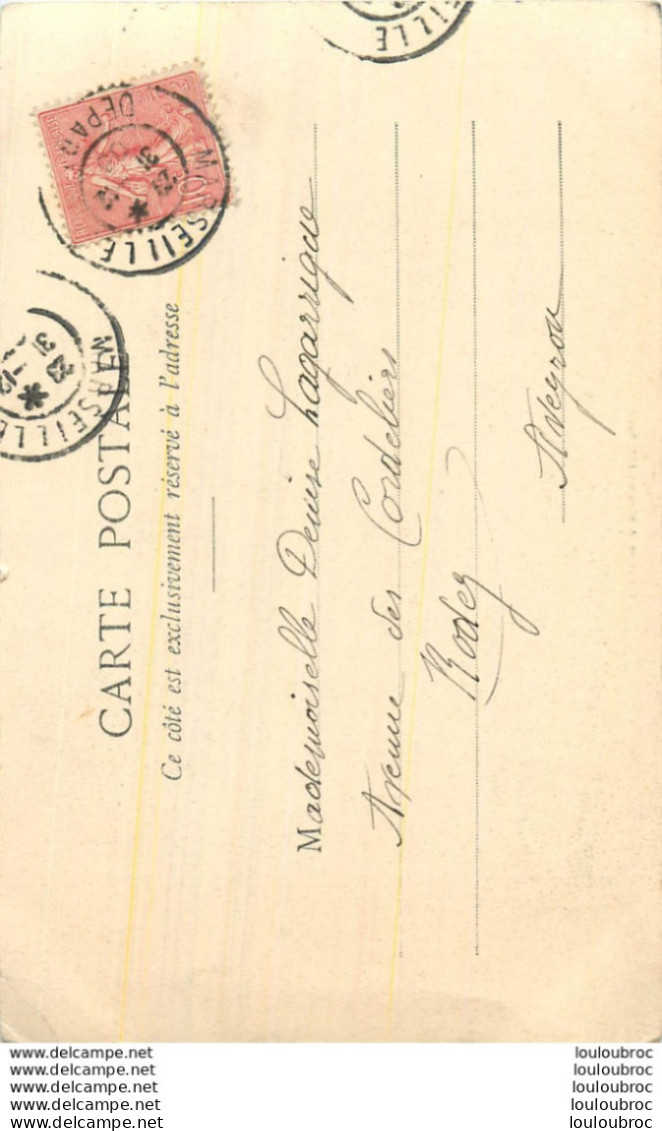 CARTE POSTALE
Ce côté est exclusivement réservé à l'adresse
Mademoiselle Denise Lagarrigue
Avenue des Cordeliers
Rodez
Aveyron
MARSEILLE
DEPART
23
31
MARSEILLE
23
31 -12
EILLE
www.delcampe.net
www.delcampe.net
www.delcampe.net
www.delcampe.net
www.delcampe.net
louloubroc
louloubroc
louloubroc
louloubroc
louloubroc